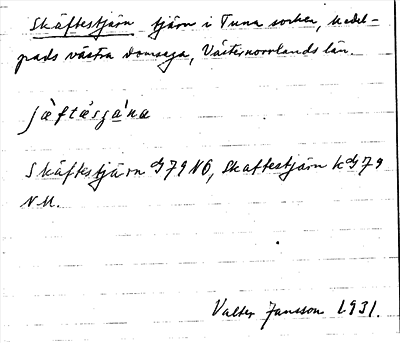 Skäftestjärn tjärn i Tuna socken, Medel-
pads västra domsaga, Västernorrlands län.
jæ̀ftásχạ́na
Skäftestjärn G79 NO, Skaftestjärn kG79
N.M.
Valter Jansson 1931.